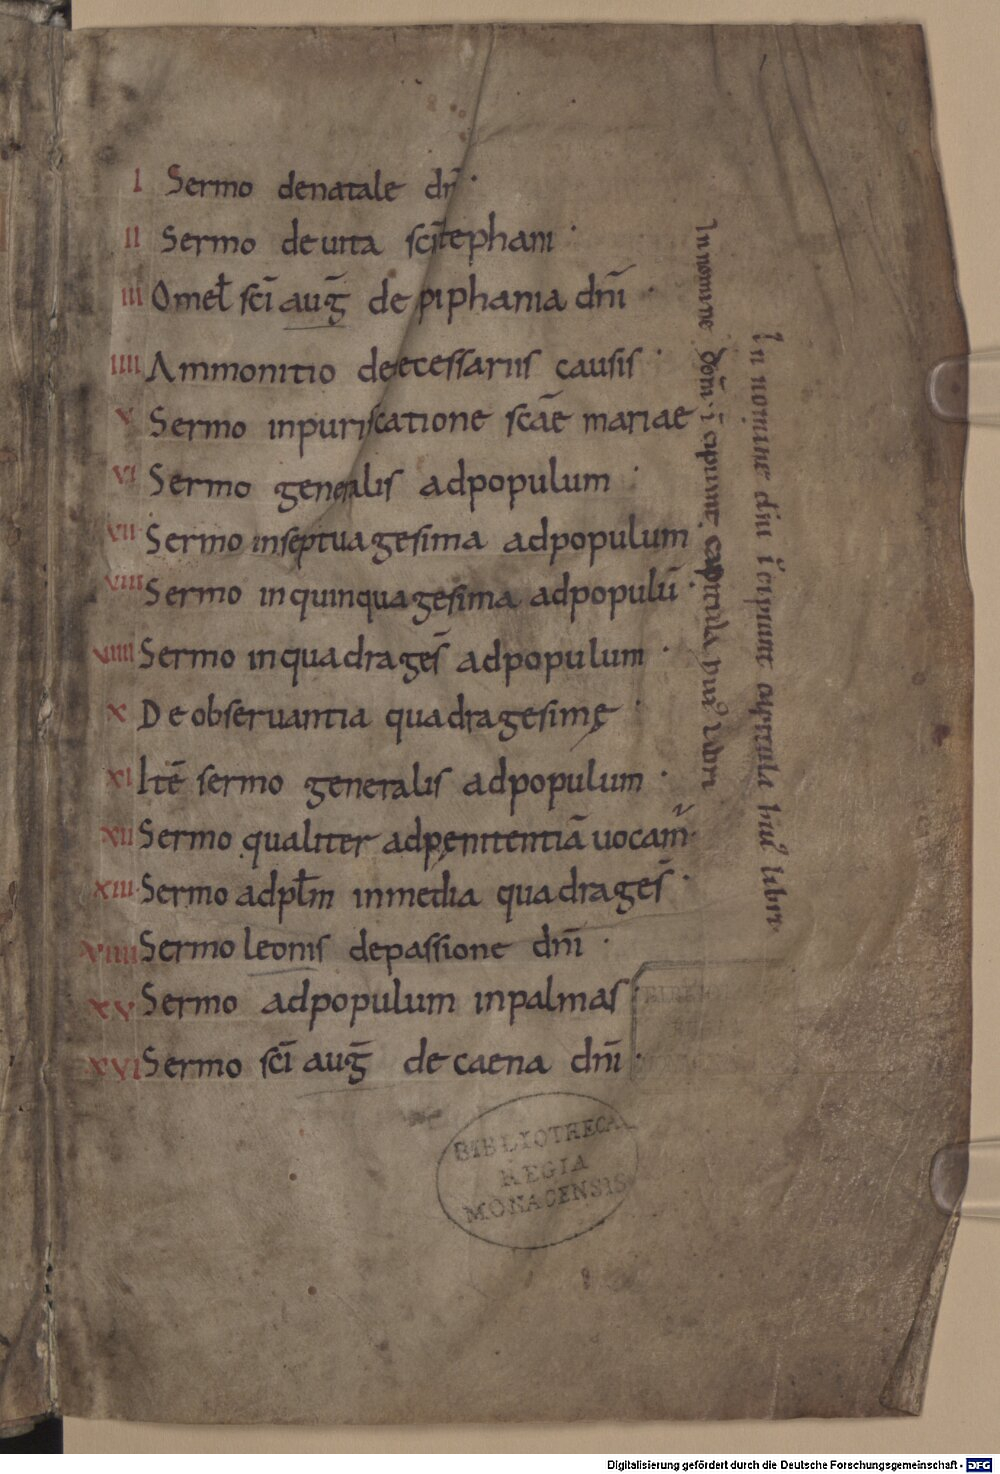 I Sermo denatale dn̄i ·
II Sermo deuita sc̄i stephani ·
III Omeł sc̄i auḡ de epiphania dn̄i ·
IIII Ammonitio de necessariis causis ·
V Sermo inpurificatione sc̄ae mariae
VI Sermo generalis adpopulum ·
VII Sermo inseptuagesima adpopulum
VIII Sermo inquinquagesima adpopulū ·
VIIII Sermo inquadrages̄ adpopulum ·
X Deobseruantia quadragesimę ·
XI Itē sermo generalis adpopulum ·
XII Sermo qualiter adpęnitentiā uocam̄ ·
XIII · Sermo adpłm inmedia quadrages̄ ·
XIIII Sermo leonis depassione dn̄i ·
XV Sermo adpopulum inpalmas ·
XVI Sermo sc̄i auḡ decaena dn̄i ·
In nomine dom̄ · ī cipiunt capitula huiꝰ libri
In nomine dn̄i īcipiunt capitula huiꝰ libri ·
BIBLIOTHECA
REGIA
MONACENSIS
Digitalisierung gefördert durch die Deutsche Forschungsgemeinschaft - DFG